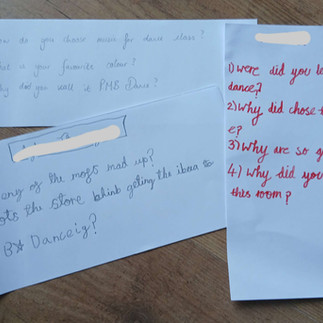 do you choose music for dance class?
is your favourite colour?
did you call it RMB Dance?
any of the mofs mad up?
ots the store behind geting the ibea to
Danceig?
1) were did you le
dance?
2) Why did chose t
e?
3) Why are so g
4) Why did you
this room?